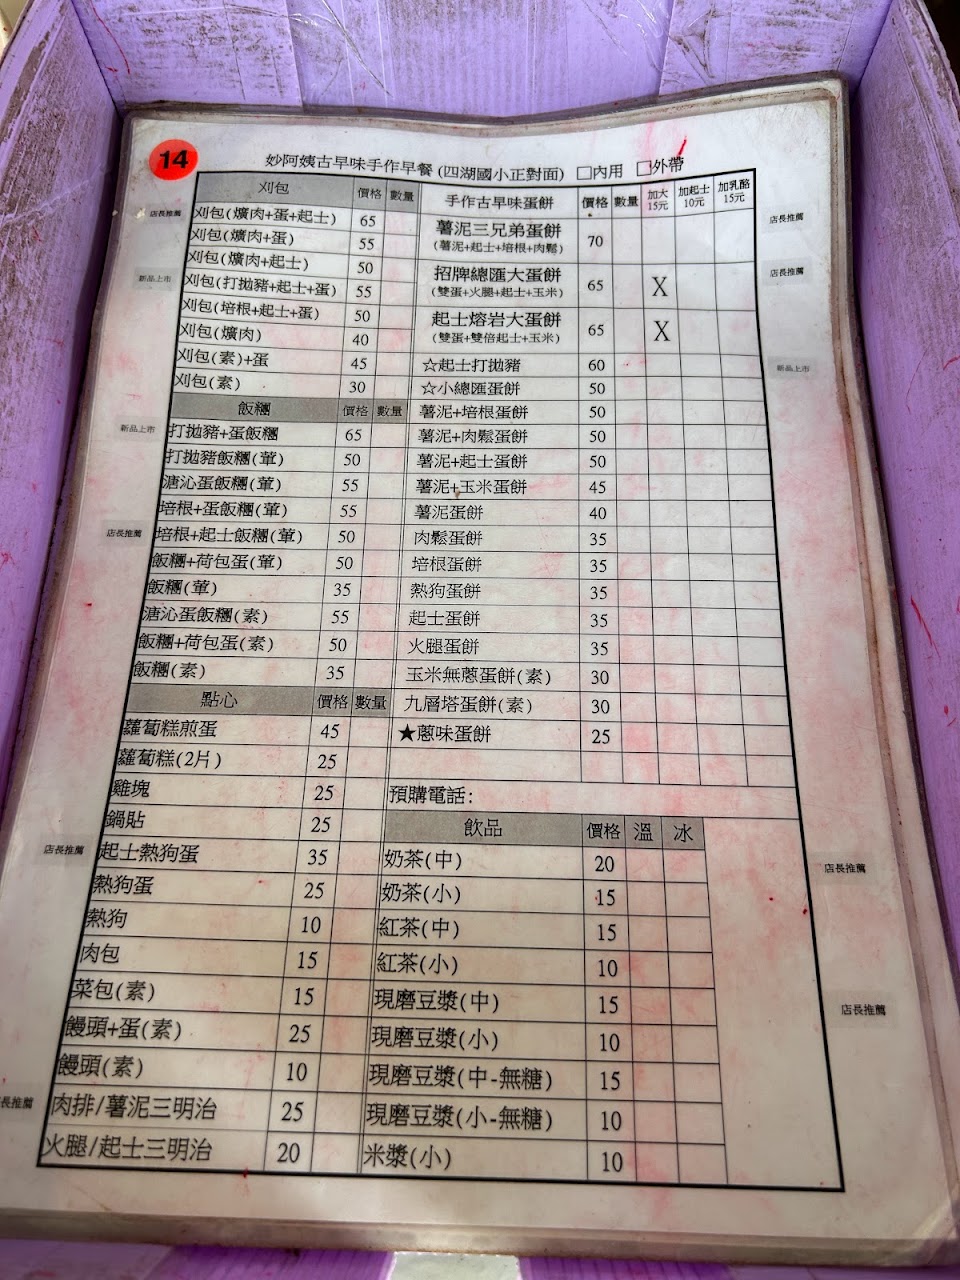 14
妙阿姨古早味手作早餐 (四湖國小正對面) □內用 □外帶
刈包 價格 數量
店長推薦 刈包(爌肉+蛋+起士) 65
刈包(爌肉+蛋) 55
刈包(爌肉+起士) 50
新品上市 刈包(打拋豬+起士+蛋) 55
刈包(培根+起士+蛋) 50
刈包(爌肉) 40
刈包(素)+蛋 45
刈包(素) 30
飯糰 價格 數量
新品上市 打拋豬+蛋飯糰 65
打拋豬飯糰(葷) 50
溏沁蛋飯糰(葷) 55
培根+蛋飯糰(葷) 55
店長推薦 培根+起士飯糰(葷) 50
飯糰+荷包蛋(葷) 50
飯糰(葷) 35
溏沁蛋飯糰(素) 55
飯糰+荷包蛋(素) 50
飯糰(素) 35
點心 價格 數量
蘿蔔糕煎蛋 45
蘿蔔糕(2片) 25
雞塊 25
鍋貼 25
店長推薦 起士熱狗蛋 35
熱狗蛋 25
熱狗 10
肉包 15
菜包(素) 15
饅頭+蛋(素) 25
饅頭(素) 10
長推薦 肉排/薯泥三明治 25
火腿/起士三明治 20
手作古早味蛋餅 價格 數量 加大15元 加起士10元 加乳酪15元
薯泥三兄弟蛋餅 70 店長推薦
(薯泥+起士+培根+肉鬆)
招牌總匯大蛋餅 65 X 店長推薦
(雙蛋+火腿+起士+玉米)
起士熔岩大蛋餅 65 X
(雙蛋+雙倍起士+玉米)
☆起士打拋豬 60 新品上市
☆小總匯蛋餅 50
薯泥+培根蛋餅 50
薯泥+肉鬆蛋餅 50
薯泥+起士蛋餅 50
薯泥+玉米蛋餅 45
薯泥蛋餅 40
肉鬆蛋餅 35
培根蛋餅 35
熱狗蛋餅 35
起士蛋餅 35
火腿蛋餅 35
玉米無蔥蛋餅(素) 30
九層塔蛋餅(素) 30
★蔥味蛋餅 25
預購電話:
飲品 價格 溫 冰
奶茶(中) 20 店長推薦
奶茶(小) 15
紅茶(中) 15
紅茶(小) 10
現磨豆漿(中) 15 店長推薦
現磨豆漿(小) 10
現磨豆漿(中-無糖) 15
現磨豆漿(小-無糖) 10
米漿(小) 10